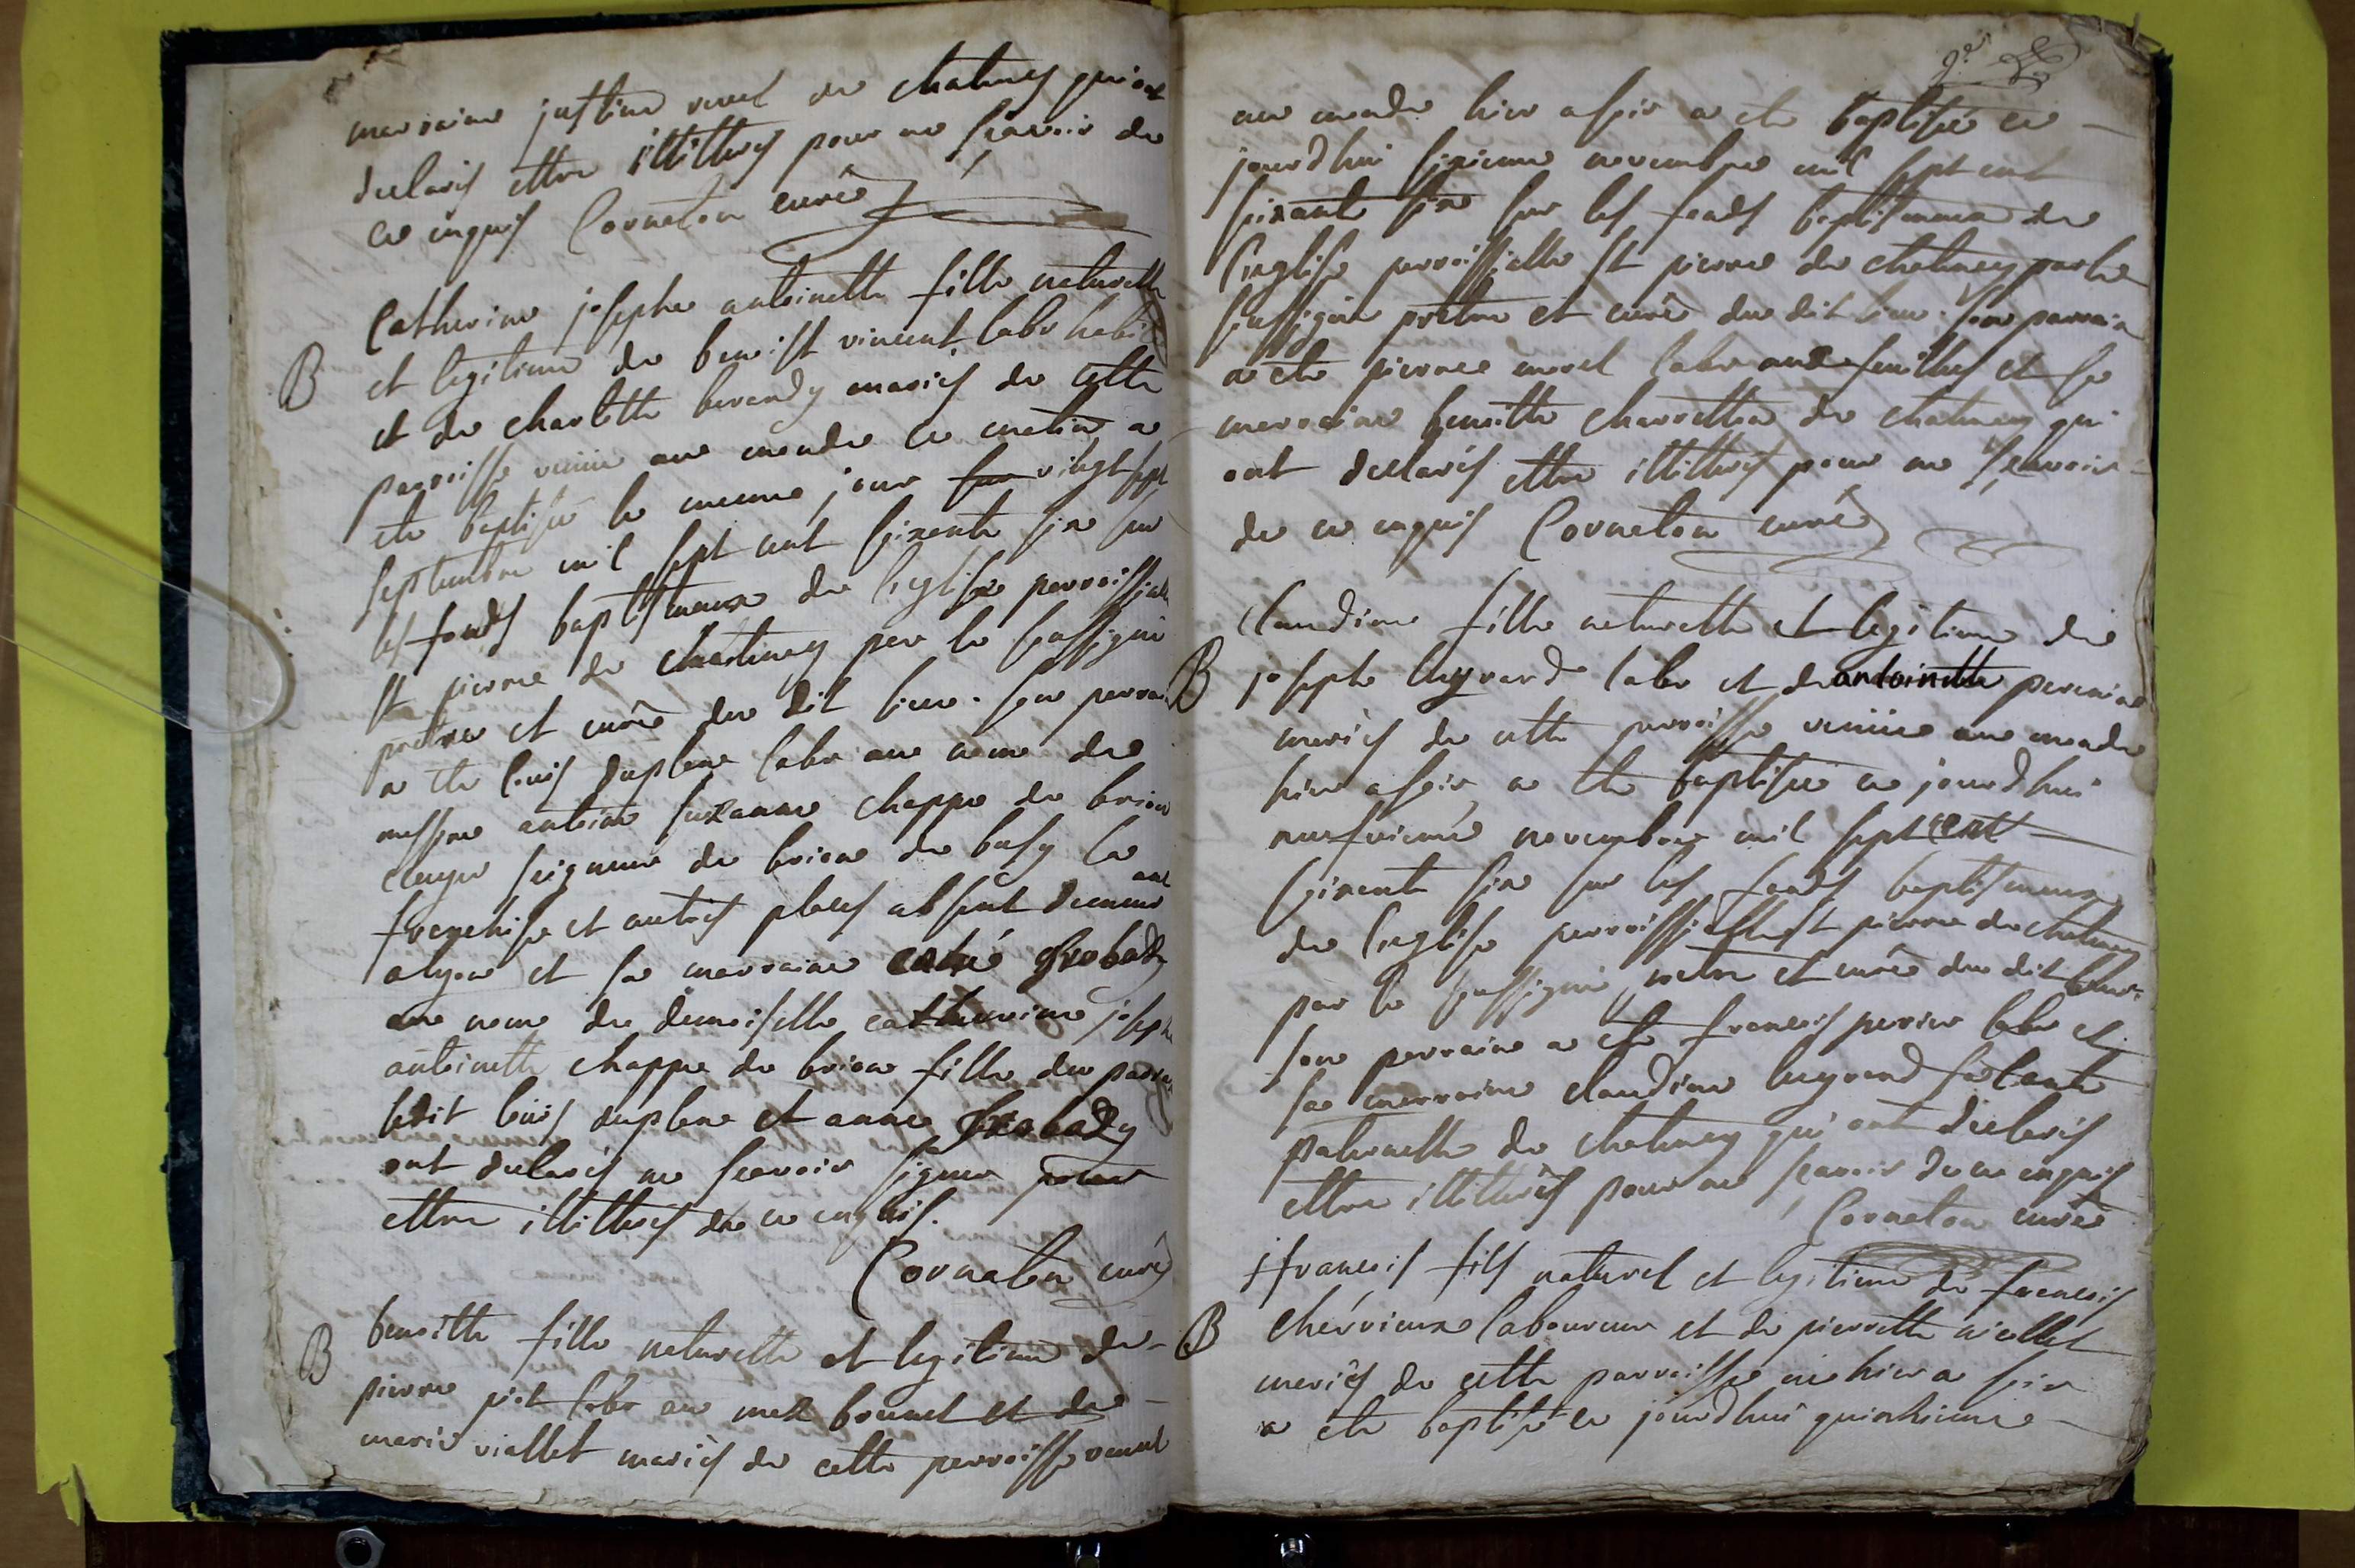 marraine justine vivel de chatenay qui ont
declarés ettre illitterés pour ne scavoir de
ce enquis Corneton curé
Catherine josephe antoinette fille naturelle
B et legitime de benoist vincent labr
et de charlotte berandy mariés de cette
parroisse venüe au monde ce matin a
ete baptisée le meme jour vingt sept
septembre mil sept cent soixante six sur
les fonds baptismaux de l'eglise parroissiale
st pierre de chastenay par le soussigné
pretre et curé du dit lieu. son parrain
a ete louis duplene labr au nom de
messire antoine suzanne chappe de brion
ecuyer seigneur de brion de busy la
franchise et autres places absent
et sa marraine anne Grobady
au nom de demoiselle catherine josephe
antoinette chappe de brion fille du parrain
ledit louis duplene et anne Grobady
ont declarés ne scavoir signer pour
ettre illitterés de ce enquis.
Corneton curé
benoitte fille naturelle et legitime de
B pierre piot labr au mas bonnet et de
marie viallet mariés de cette parroisse venüe
9e
au monde hier a soir a ete baptisée ce
jourd'hui sixieme novembre mil sept cent
soixante six sur les fonds baptismaux de
l'eglise parroissialle st pierre de chatenay par le
soussigné pretre et curé du dit lieu. son parrain
a ete pierre morel labr aux feuilles et sa
marraine benoitte charretton de chatenay qui
ont declarés ettre illitterés pour ne scavoir
de ce enquis Corneton curé
Claudine fille naturelle et legitime de
B joseph legrand labr et de antoinette
mariés de cette parroisse venüe au monde
hier a soir a ete baptisée ce jourd'hui
neufvieme novembre mil sept cent
soixante six sur les fonds baptismaux
de l'eglise parroissialle st pierre de chatenay
par le soussigné pretre et curé du dit lieu.
son parraine a ete francois perrier labr et
sa marraine claudine legrand sa tante
paternelle de chatenay qui ont declarés
ettre illitterés pour ne scavoir de ce enquis
Corneton curé
francois fils naturel et legitime de francois
B chervieux laboureur et de pierrette viallet
mariés de cette parroisse né hier a soir
a ete baptisé ce jourd'hui quinzieme